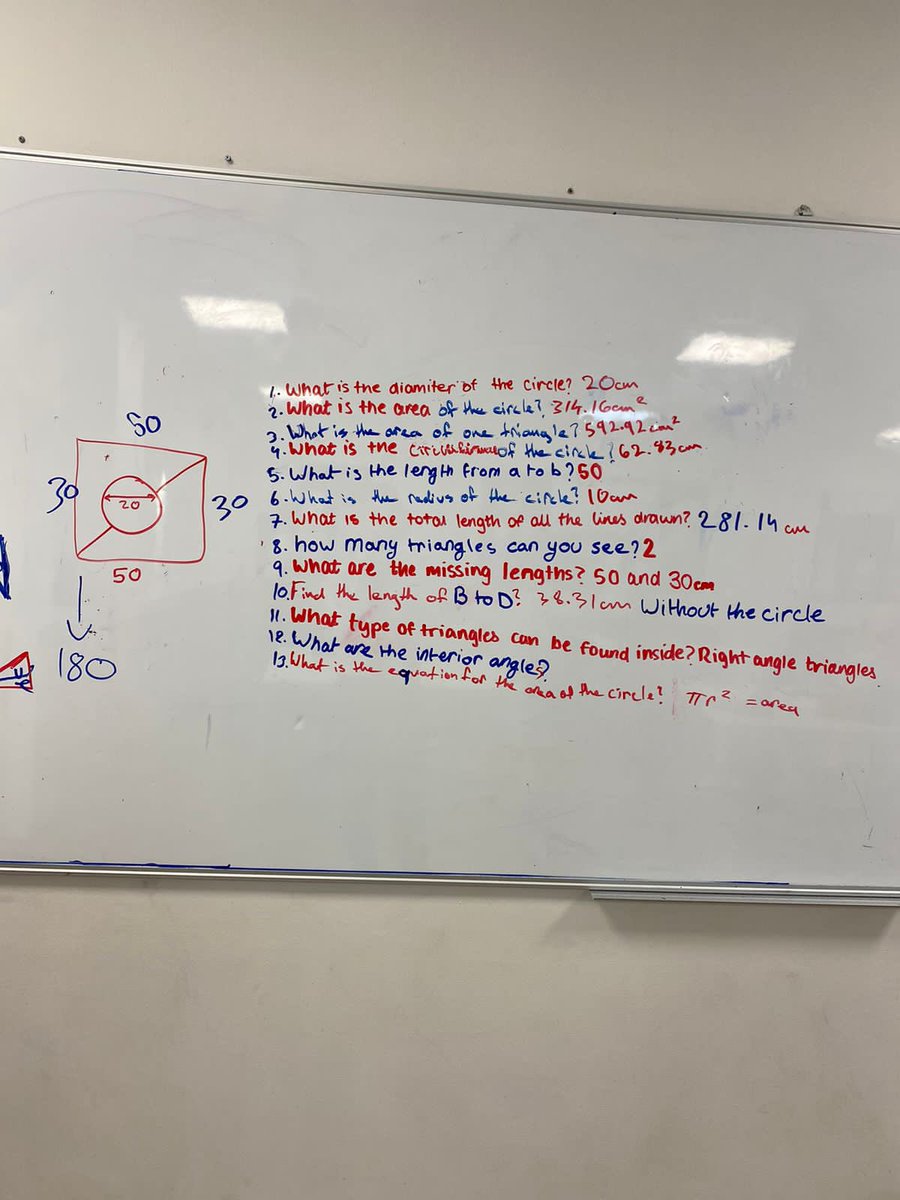 50
30
20
30
50
180
1. What is the diamiter of the circle? 20cm
2. What is the area of the circle? 314.16cm²
3. What is the area of one triangle? 592.92cm²
4. What is the of the circle? 62.83cm
5. What is the length from a to b? 50
6. What is the radius of the circle? 10cm
7. What is the total length of all the lines drawn? 281.14cm
8. how many triangles can you see? 2
9. What are the missing lengths? 50 and 30cm
10. Find the length of B to D? 38.31cm Without the circle
11. What type of triangles can be found inside? Right angle triangles
12. What are the interior angles?
13. What is the equation for the area of the circle? πr² = area